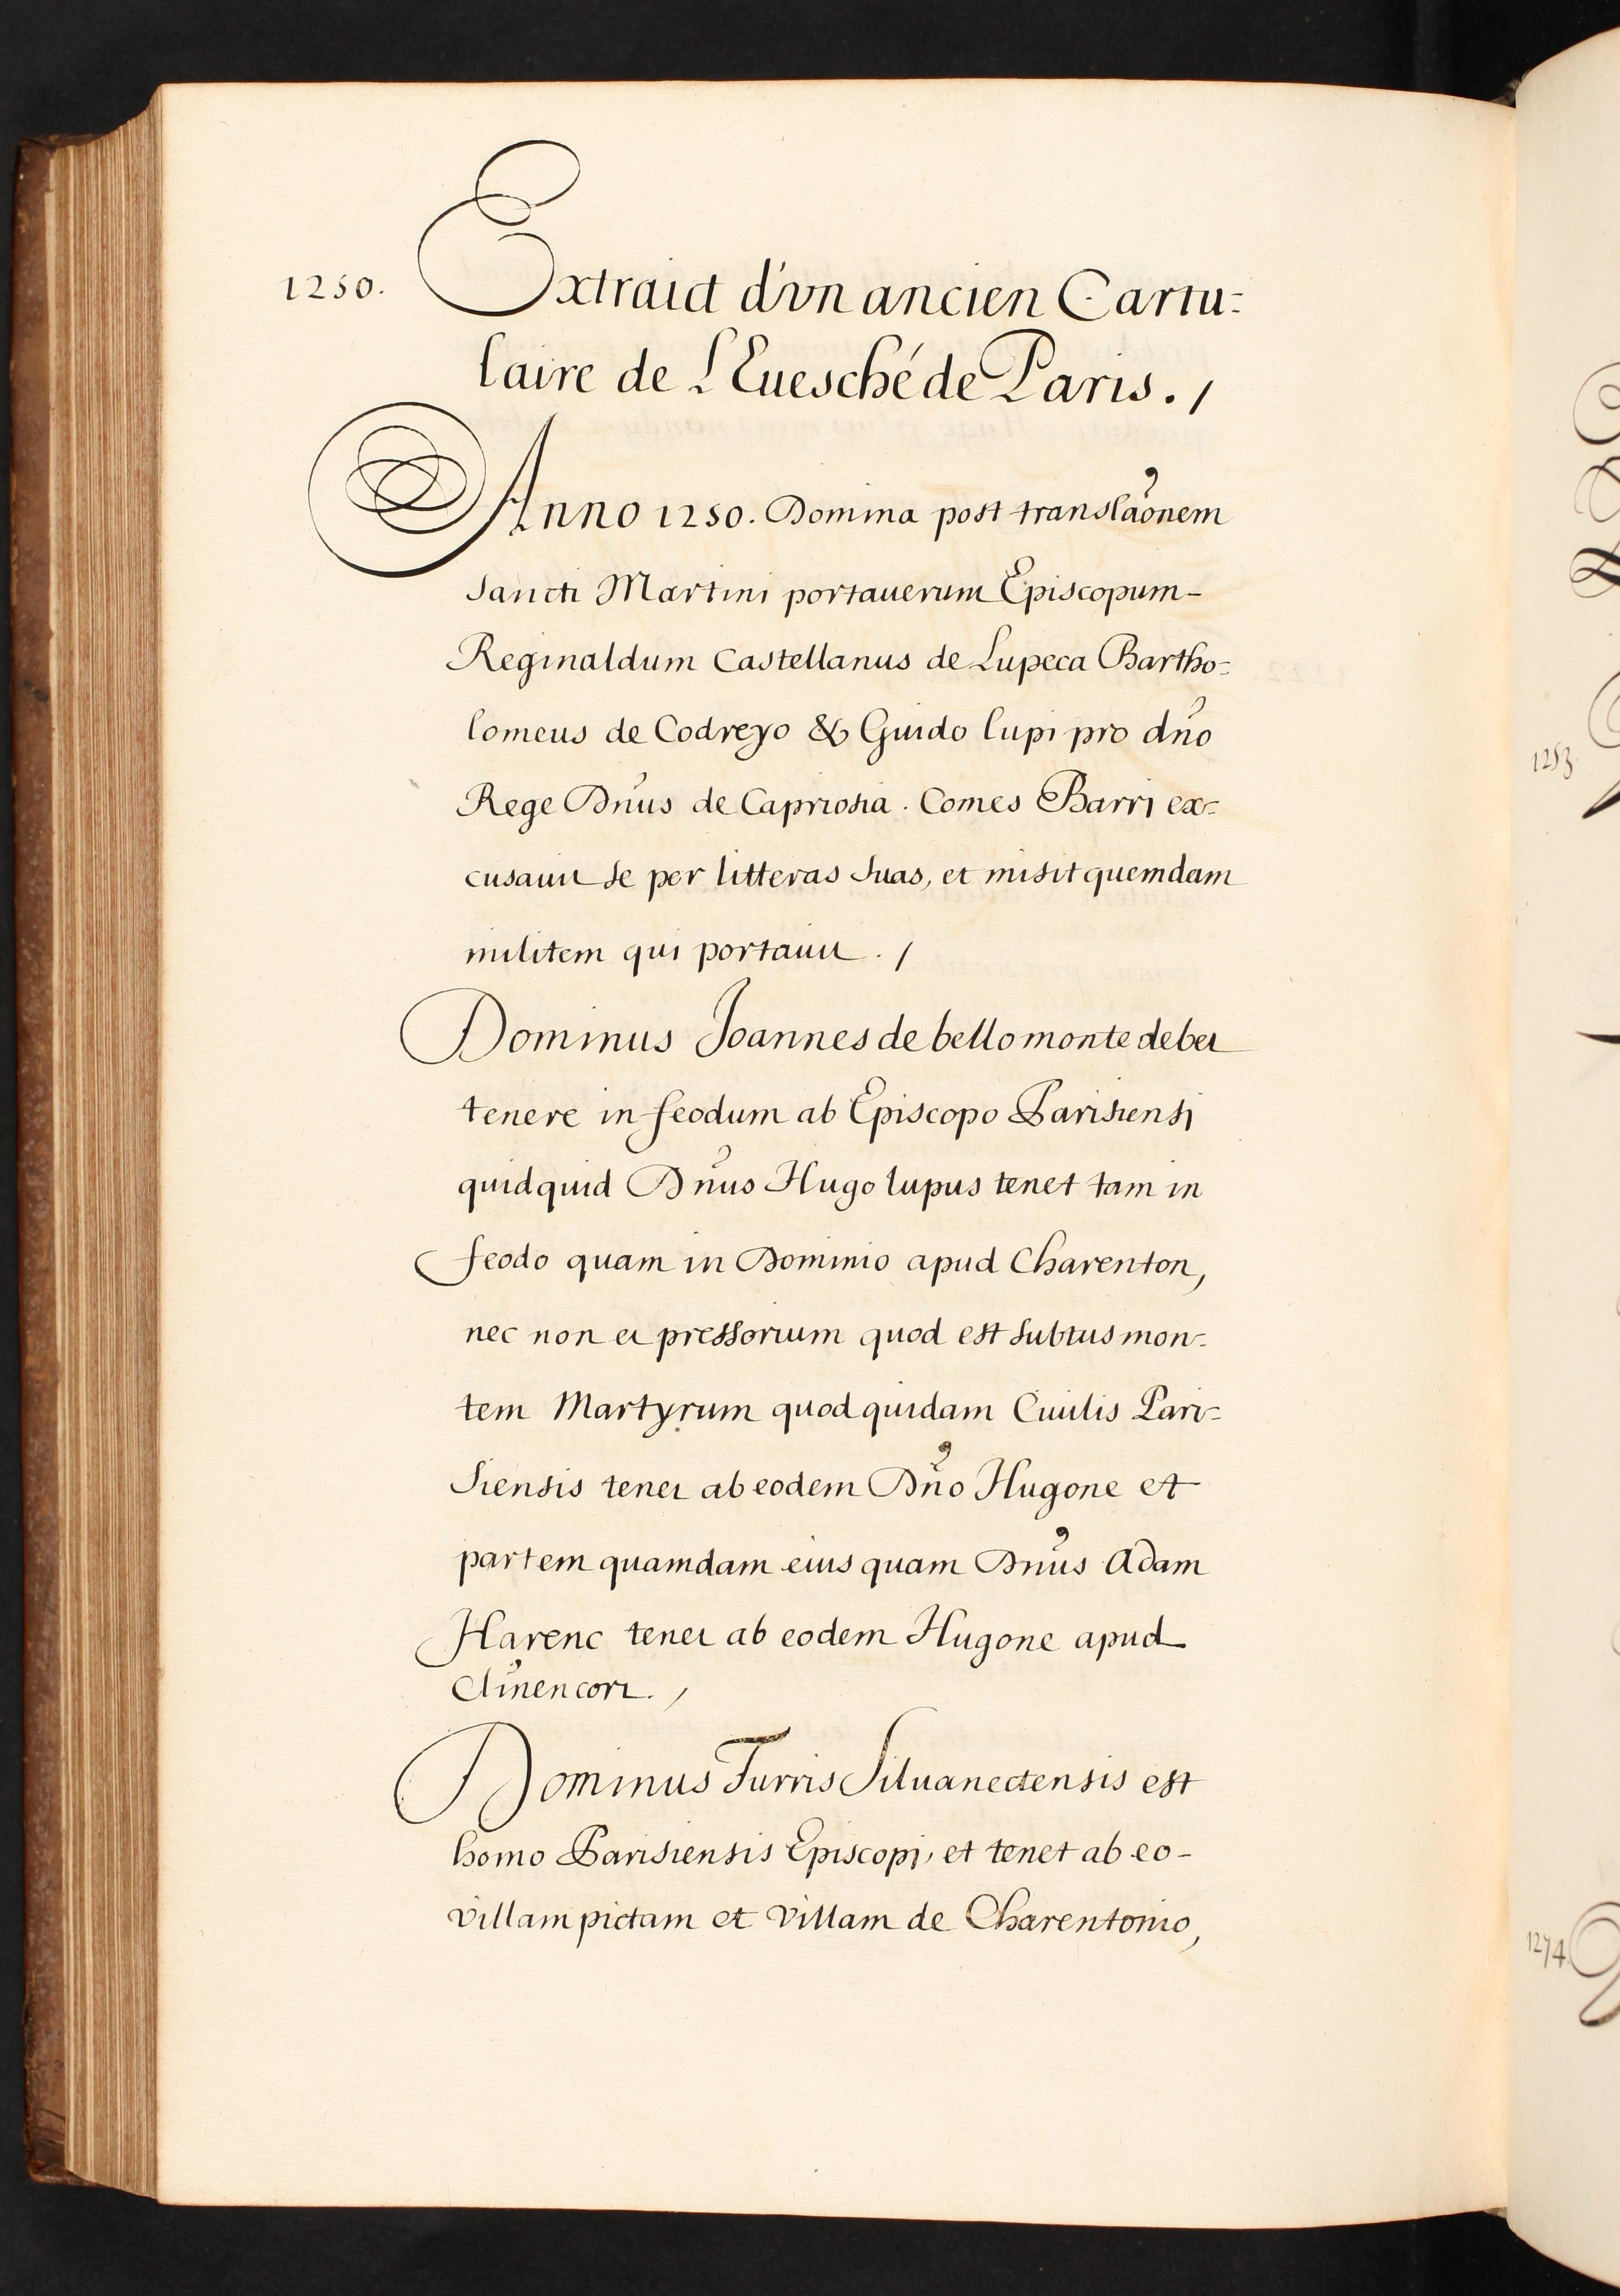 1250.
Extraict d'vn ancien Cartu=
laire de L'Euesché de Paris. /
Anno 1250. Domina post translaõnem
sancti Martini portauerunt Episcopum-
Reginaldum Castellanus de Lupeca Bartho=
lomeus de Codreyo & Guido lupi pro dño
Rege Dñus de Capriosia. Comes Barri ex=
cusauit se per litteras suas, et misit quemdam
militem qui portauit. /
Dominus Joannes de bellomonte debet
tenere in feodum ab Episcopo Parisiensi
quidquid Dñus Hugo lupus tenet tam in
feodo quam in Dominio apud Charenton,
nec non et pressorium quod est subtus mon=
tem Martyrum quod quidam Ciuilis Pari=
siensis tenet ab eodem Dño Hugone et
partem quamdam eius quam Dñus Adam
Harenc tenet ab eodem Hugone apud
Dominus Turris Siluanectensis est
homo Parisiensis Episcopi, et tenet ab eo-
villam pictam et villam de Charentonio,
1253.
1274.